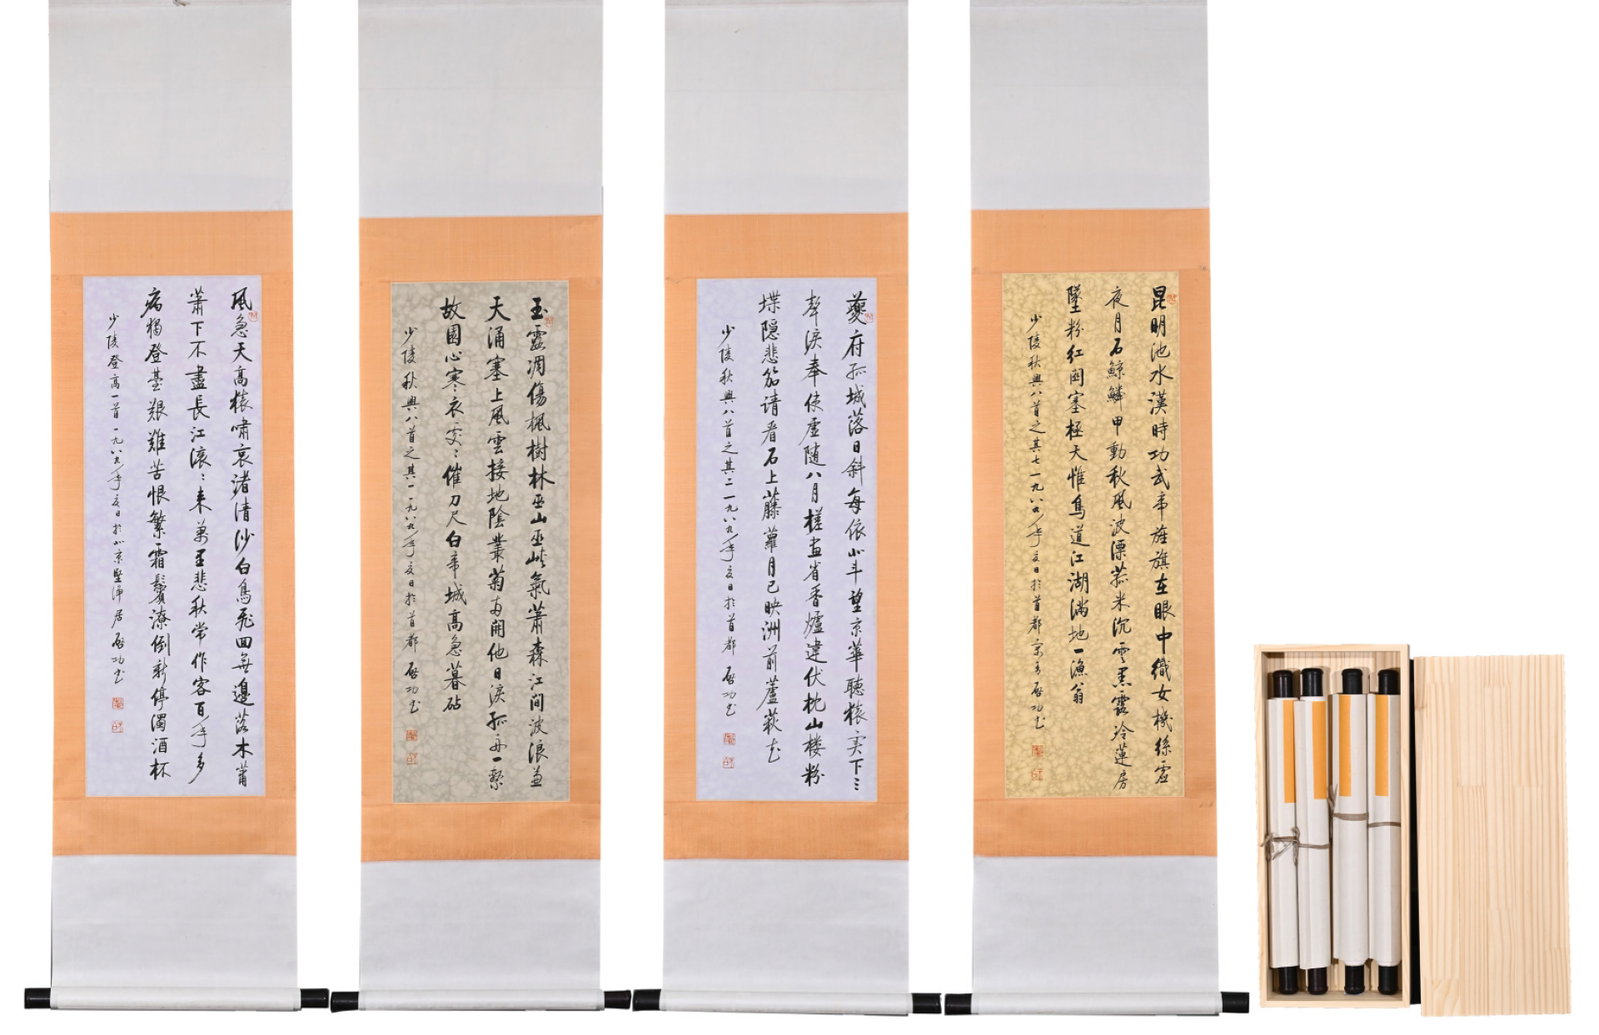 風急天高猿嘯哀渚清沙白鳥飛回無邊落木蕭
蕭下不盡長江滾々来萬里悲秋常作客百年多
病獨登臺艱難苦恨繁霜鬢潦倒新停濁酒杯
少陵登高一首一九八九年夏日於北京堅淨居啟功书
玉露凋傷楓樹林巫山巫峽氣蕭森江間波浪兼
天涌塞上風雲接地陰叢菊兩開他日淚孤舟一繫
故園心寒衣處々催刀尺白帝城高急暮砧
少陵秋興八首之其一一九八九年夏日於首都啟功书
夔府孤城落日斜每依北斗望京華聽猿实下三
聲淚奉使虛随八月槎畫省香爐違伏枕山楼粉
堞隱悲笳請看石上藤蘿月已映洲前蘆荻花
少陵秋興八首之其二一九八九年夏日於首都啟功书
昆明池水漢時功武帝旌旗在眼中織女機絲虛
夜月石鯨鱗甲動秋風波漂菰米沉雲黑露冷蓮房
墜粉紅関塞極天惟鳥道江湖滿地一漁翁
少陵秋興八首之其七一九八九年夏日於首都啟功书